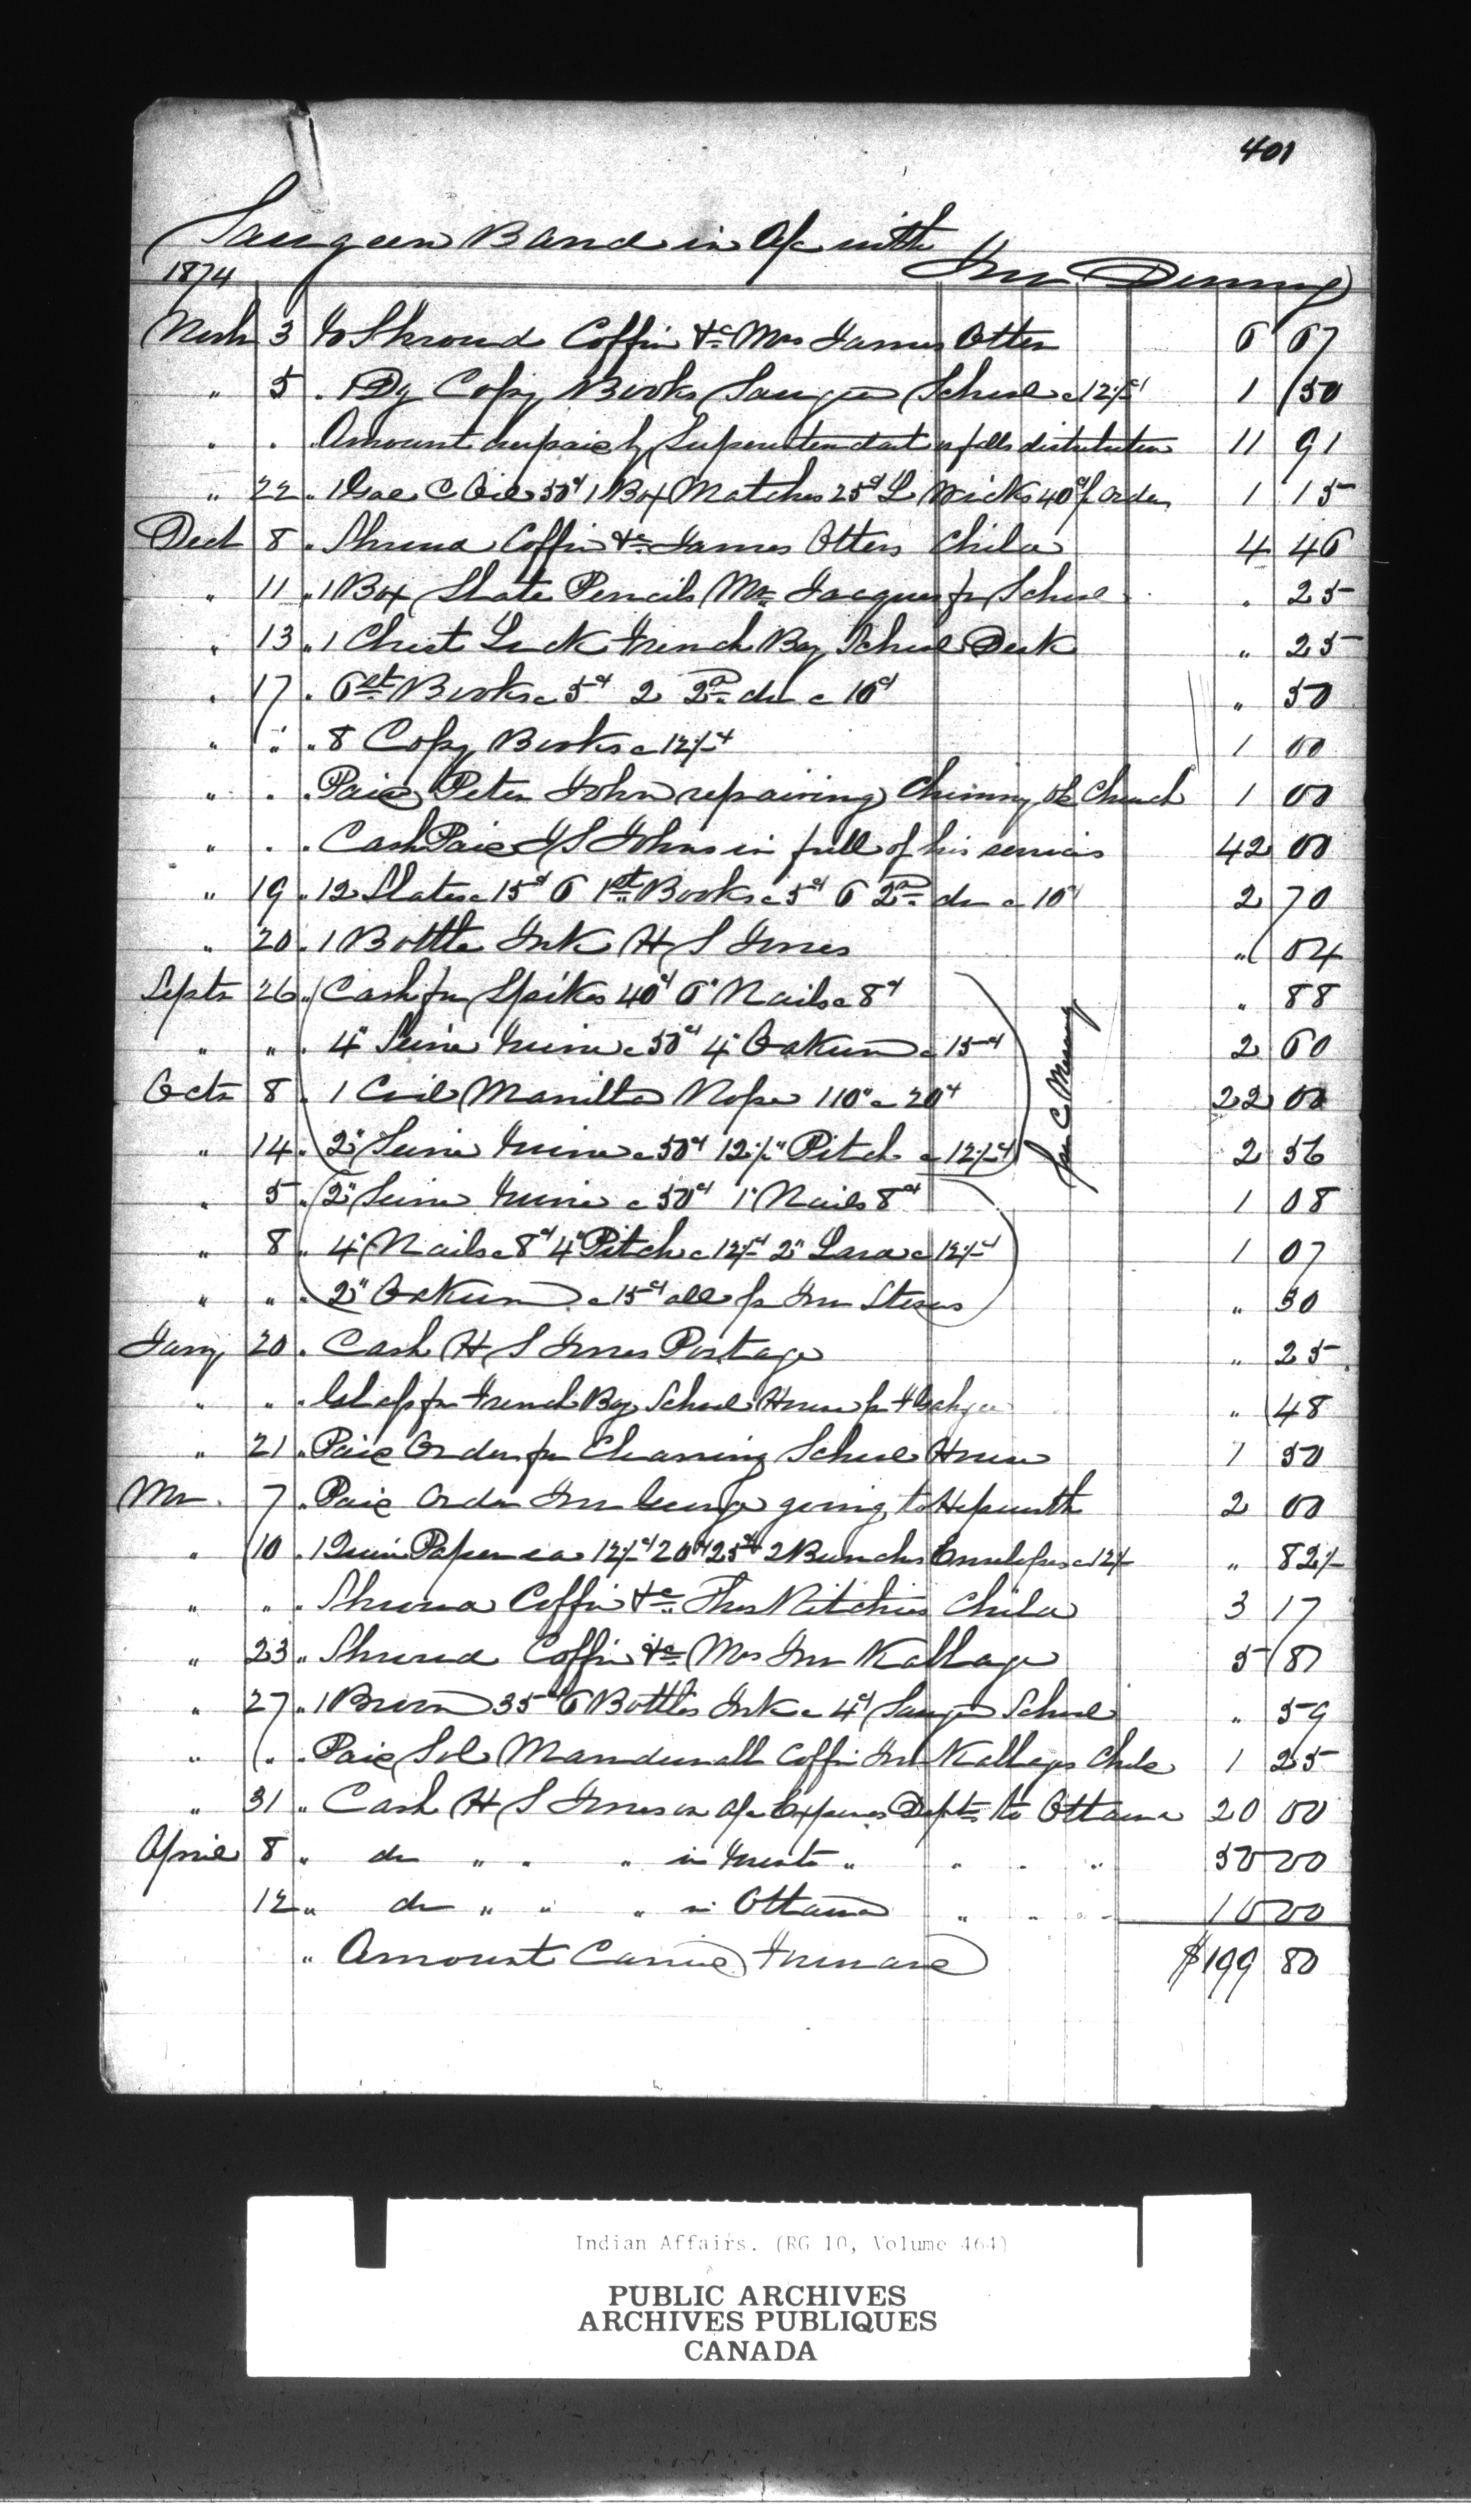 401
Saugeen Band in a/c with
1874 Jno Denny
Novbr 3 To Shroud Coffin &c Mrs James Otter 6 67
" 5 " 1 Dz Copy Books Saugeen School @ 12½cts 1 50
" " " Amount overpaid by Superintendant in falls distribution 11 91
" 22 " 1 Gal C Oil 50cts 1 Box Matches 25cts L Wicks 40cts pr Order 1 15
Decb 8 " Shroud Coffin &c James Otters Child 4 46
" 11 " 1 Box Slate Pencils Mr Jacques for School " 25
" 13 " 1 Chest Lock French Bay School Desk " 25
" 17 " 6 1st Books @ 5cts 2 2nd do @ 10cts " 50
" " " 8 Copy Books @ 12½cts 1 00
" " " Paid Peter John repairing Chimney of Church 1 00
" " " Cash Paid J S Johns in full of his services 42 00
" 19 " 12 Slates @ 15cts 6 1st Books @ 5cts 6 2nd do @ 10cts 2 70
" 20 " 1 Bottle Ink H S Jones " 04
Septr 26 " Cash for Spikes 40cts 6" Nails @ 8cts " 88
" " " 4" Seine Twine @ 50cts 4" Oakum @ 15cts 2 60
Octr 8 " 1 Coil Manilla Rope 110" @ 20cts 22 00
" 14 " 2" Seine Twine @ 50cts 12½" Pitch @ 12½cts 2 56
" 5 " 2" Seine Twine @ 50cts 1" Nails 8cts 1 08
" 8 " 4" Nails @ 8cts 4" Pitch @ 12½cts 2" Lard @ 12½cts 1 07
" " " 2" Oakum @ 15cts all pr Jno " 30
Jany 20 " Cash H S Jones Postage " 25
" " " for French Bay School House pr " 48
" 21 " Paid Order for Cleaning School House 1 50
Mar. 7 " Paid Order Jno George going to Hepworth 2 00
" 10 " 1 Quire Paper ea 12½cts 20cts 25cts 2 Bunches Envelopes @ 12½ " 82½
" " " Shroud Coffin &c Thos Ritchies Child 3 17
" 23 " Shroud Coffin &c Mrs Jno Kallage 5 87
" 27 " 1 Broom 35cts 6 Bottles Ink @ 4cts Saugeen School " 59
" " " Paid Sol Coffin Jno Kallages Child 1 25
" 31 " Cash H S Jones on a/c Expenses Dept to Ottawa 20 00
April 8 " do " " " in Toronto " " " " 50 00
12 " do " " " in Ottawa " " " " 10 00
" Amount Carried Forward $199 80
Indian Affairs. (RG 10, Volume 464)
PUBLIC ARCHIVES
ARCHIVES PUBLIQUES
CANADA